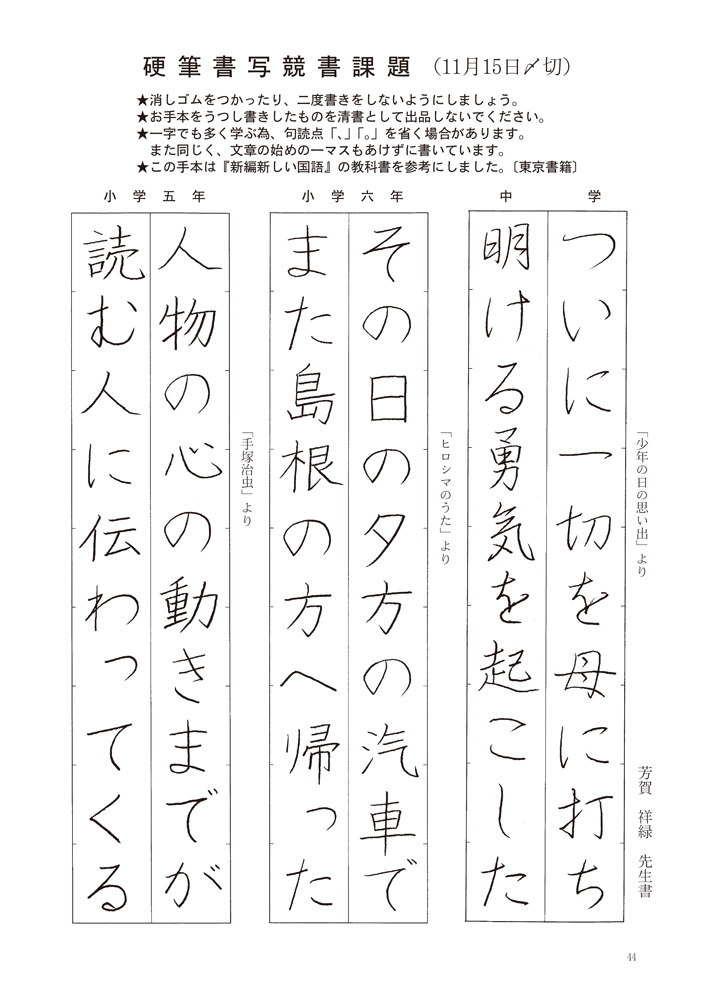 硬筆書写競書課題 (11月15日〆切)
★消しゴムをつかったり、二度書きをしないようにしましょう。
★お手本をうつし書きしたものを清書として出品しないでください。
★一字でも多く学ぶ為、句読点「、」「。」を省く場合があります。
また同じく、文章の始めの一マスもあけずに書いています。
★この手本は『新編新しい国語』の教科書を参考にしました。〔東京書籍〕
中学
「少年の日の思い出」より
ついに一切を母に打ち
明ける勇気を起こした
芳賀 祥緑 先生書
小学六年
「ヒロシマのうた」より
その日の夕方の汽車で
また島根の方へ帰った
小学五年
「手塚治虫」より
人物の心の動きまでが
読む人に伝わってくる
44